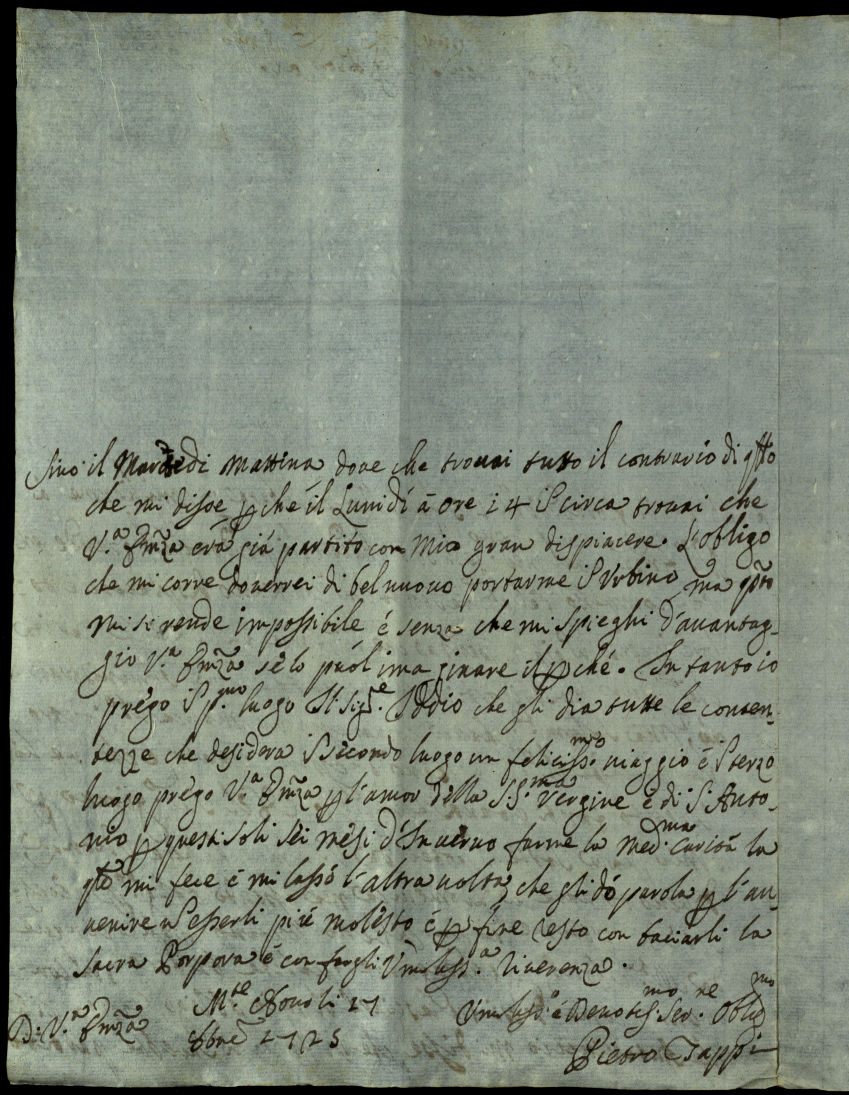 sino il Martedi mattina dove che trovai tutto il contrario di qsto
che mi disse p che il Lunidí á ore 24 in circa trovai che
V.ª Emza erá giá partito con mio gran dispiacere. L'obligo
che mi corre doverrei di bel nuovo portarme in Urbino ma qsto
mi si rende impossibile é senza che mi spieghi d'avantag-
gio V.ª Emza sé lo puól ima ginare il p ché. In tanto io
prégo in p.mo luogo Il Sig.e Iddio che gli dia tutte le conten-
tezze che desidera in sécondo luogo un feliciss.mo viaggio é in terzo
luogo prégo V.ª Emza p l'amor della SS.ma Vergine é di S. Anto-
nio p questi soli sei mési d'Inverno farme la med.ma caritá la
qle mi fece é mi lassó l'altra volta che gli dó parola p l'av-
venire in esserli piú molésto é p fine résto con baciarli la
sacra Porpora é con fargli Umiliss.ª riverenza.
D: V.ª Emza
M.te Novo li 17
Umiliss.º é Devotis.mo Ser.re Oblig.mo
1725
Pietro Tappi